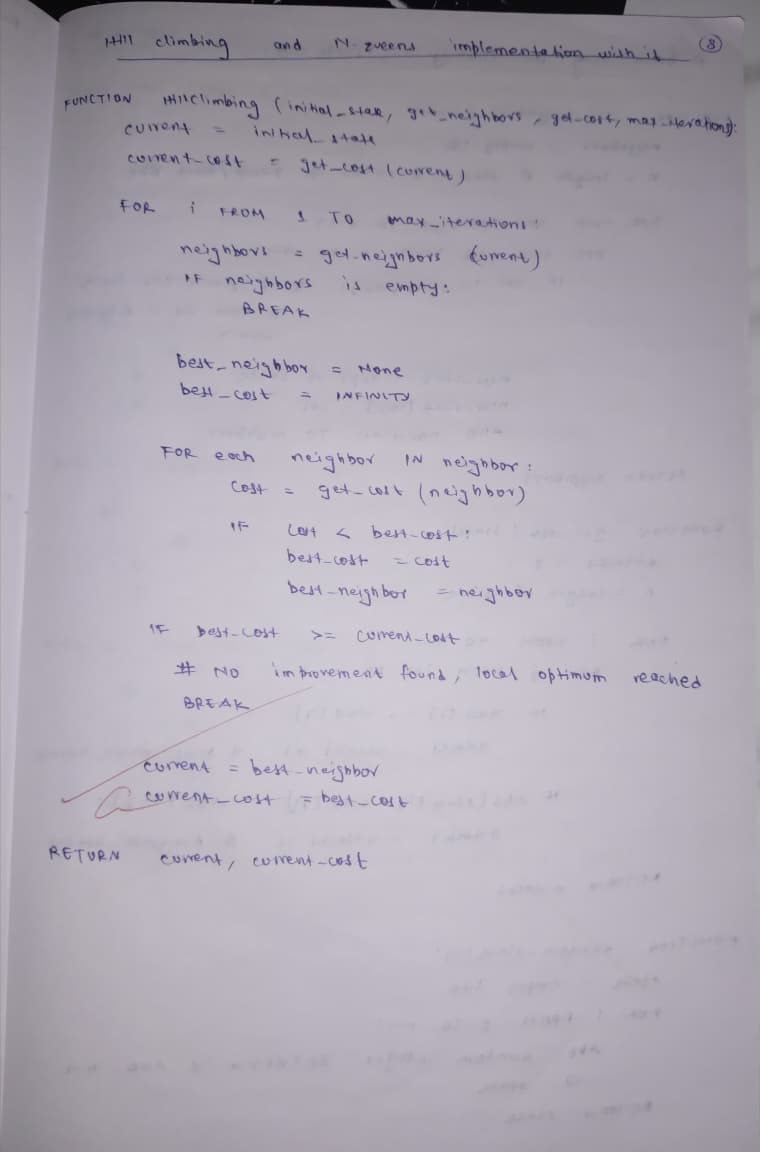 Hill climbing and N-queens implementation with it
8
FUNCTION HillClimbing (initial_state, get_neighbors, get_cost, max_iterations):
current = initial_state
current_cost = get_cost (current)
FOR i FROM 1 TO max_iterations:
neighbors = get_neighbors (current)
IF neighbors is empty:
BREAK
best_neighbor = None
best_cost = INFINITY
FOR each neighbor IN neighbor:
cost = get_cost (neighbor)
IF cost < best_cost:
best_cost = cost
best_neighbor = neighbor
IF best_cost >= current_cost
# NO improvement found, local optimum reached
BREAK
current = best_neighbor
current_cost = best_cost
RETURN current, current_cost